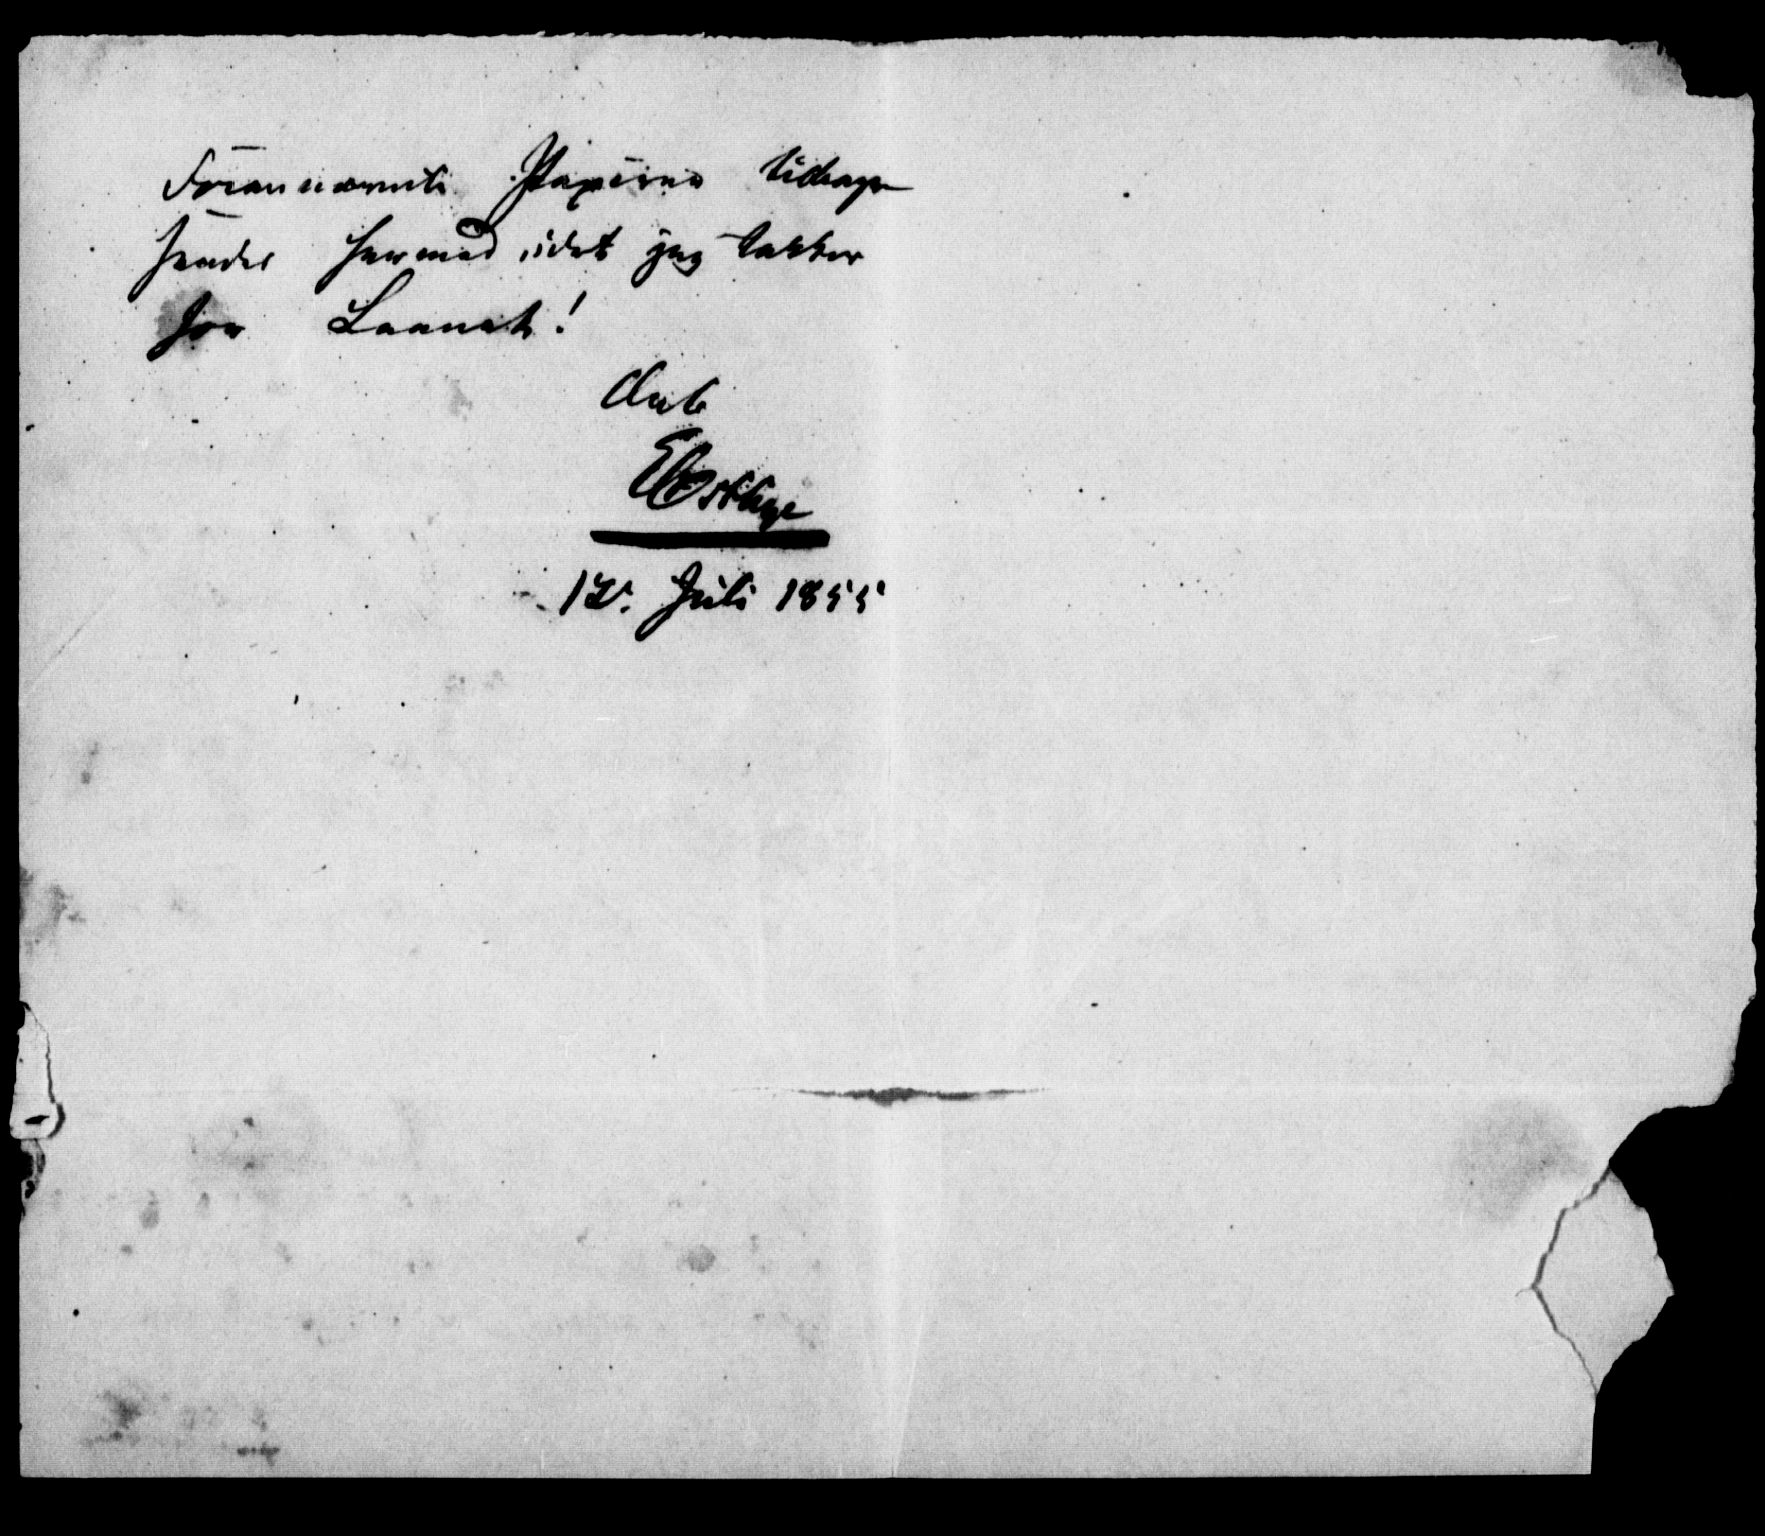 Forannævnte Papirer tilbage
sendes hermed idet jeg takker
for Laanet!
12. Juli 1855